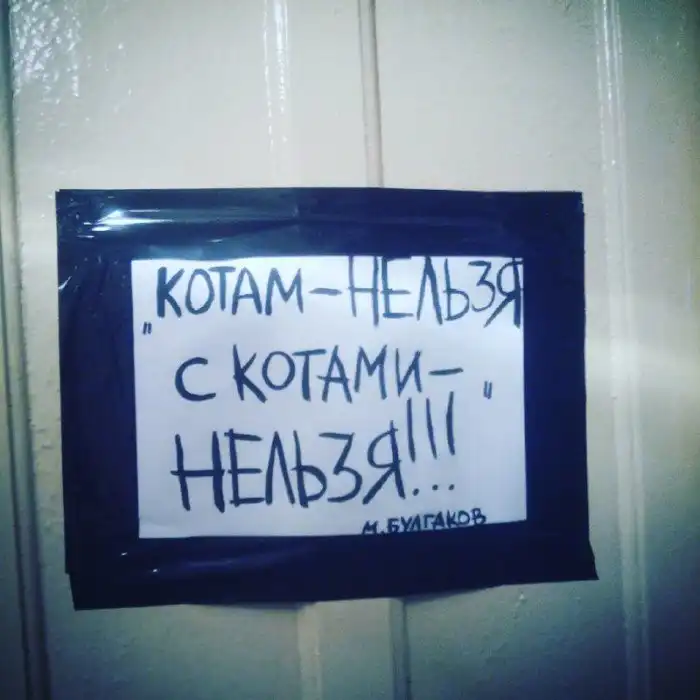 „КОТАМ–НЕЛЬЗЯ
С КОТАМИ–
НЕЛЬЗЯ!!!"
М.БУЛГАКОВ